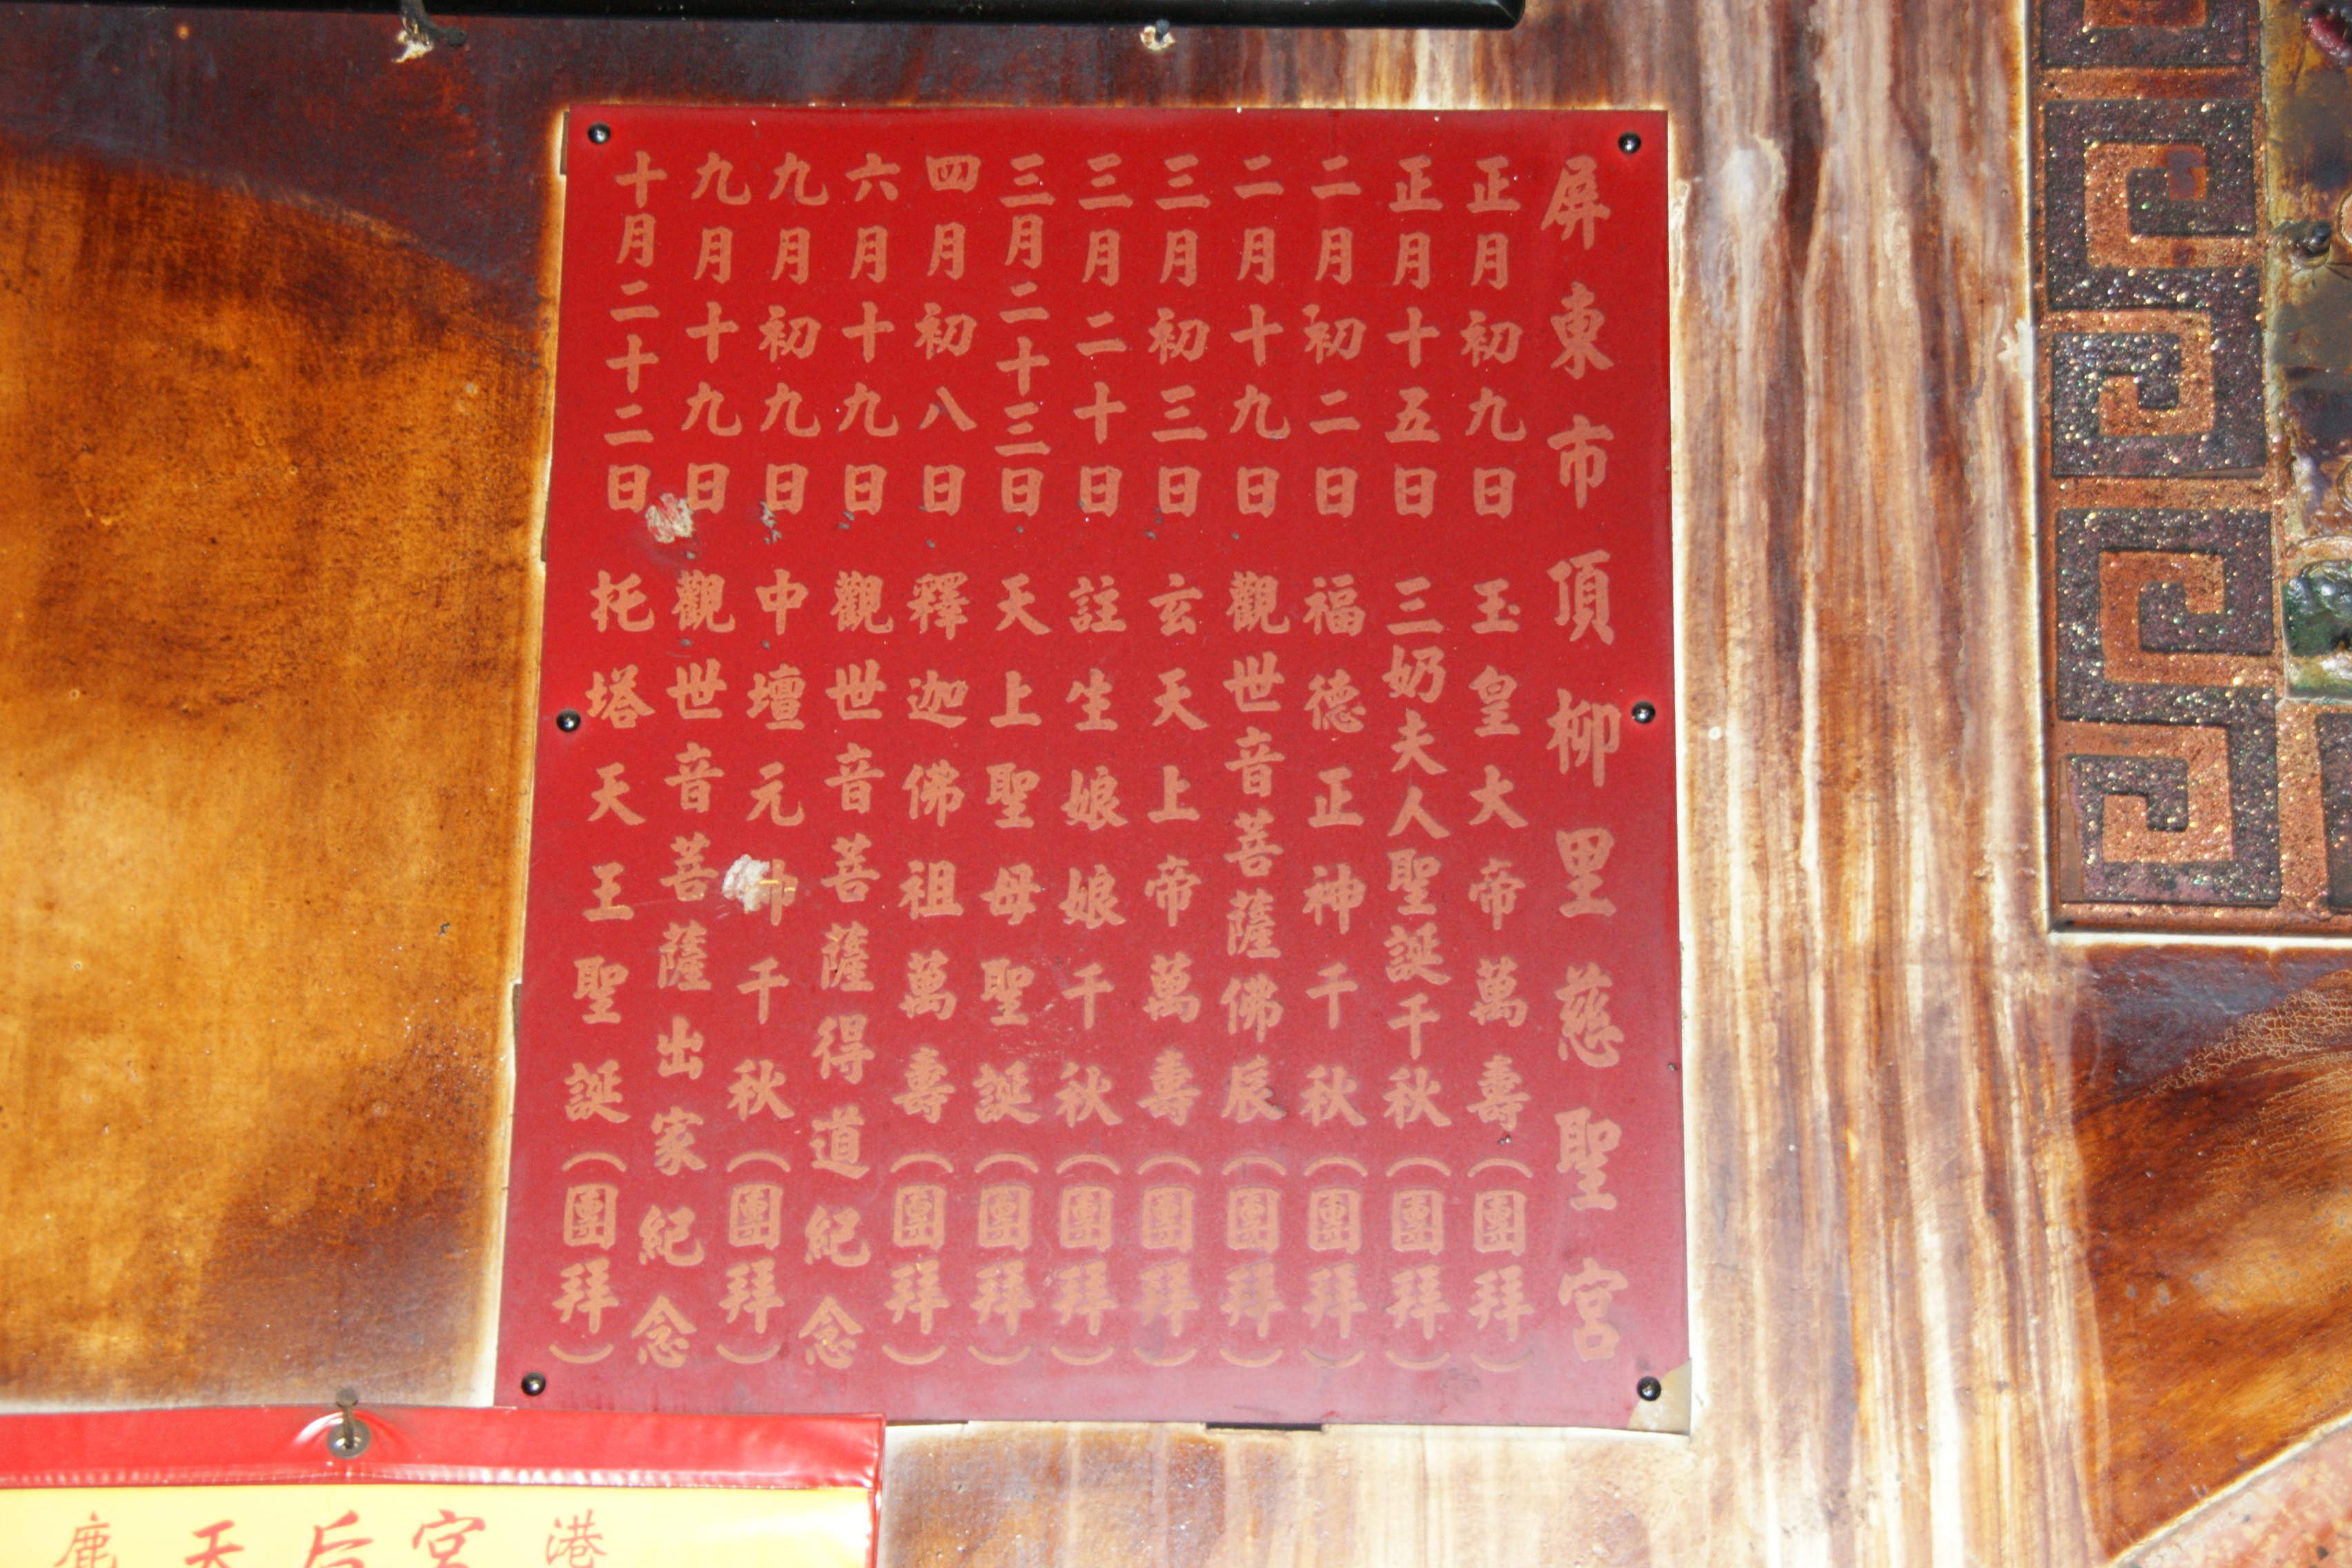 屏東市頂柳里慈聖宮
正月初九日 玉皇大帝萬壽(團拜)
正月十五日 三奶夫人聖誕千秋(團拜)
二月初二日 福德正神千秋(團拜)
二月十九日 觀世音菩薩佛辰(團拜)
三月初三日 玄天上帝萬壽(團拜)
三月二十日 註生娘娘千秋(團拜)
三月二十三日 天上聖母聖誕(團拜)
四月初八日 釋迦佛祖萬壽(團拜)
六月十九日 觀世音菩薩得道紀念
九月初九日 中壇元帥千秋(團拜)
九月十九日 觀世音菩薩出家紀念
十月二十二日 托塔天王聖誕(團拜)
鹿天后宮港